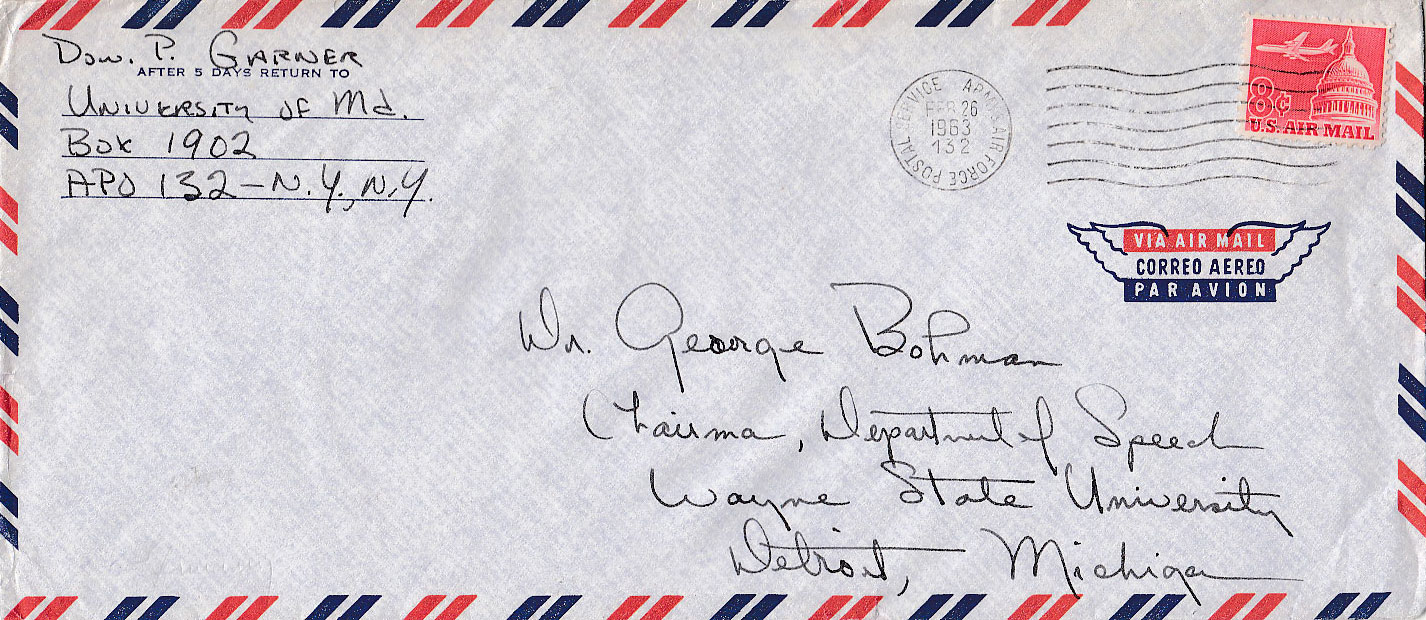 Don. P. Garner
AFTER 5 DAYS RETURN TO
University of Md.
Box 1902
APO 132 – N.Y., N.Y.
POSTAL SERVICE ARMY AIR FORCE
FEB 26
1963
132
8¢
U.S. AIR MAIL
VIA AIR MAIL
CORREO AEREO
PAR AVION
Dr. George Bohman
Chairma, Department of Speech
Wayne State University
Detroit, Michigan